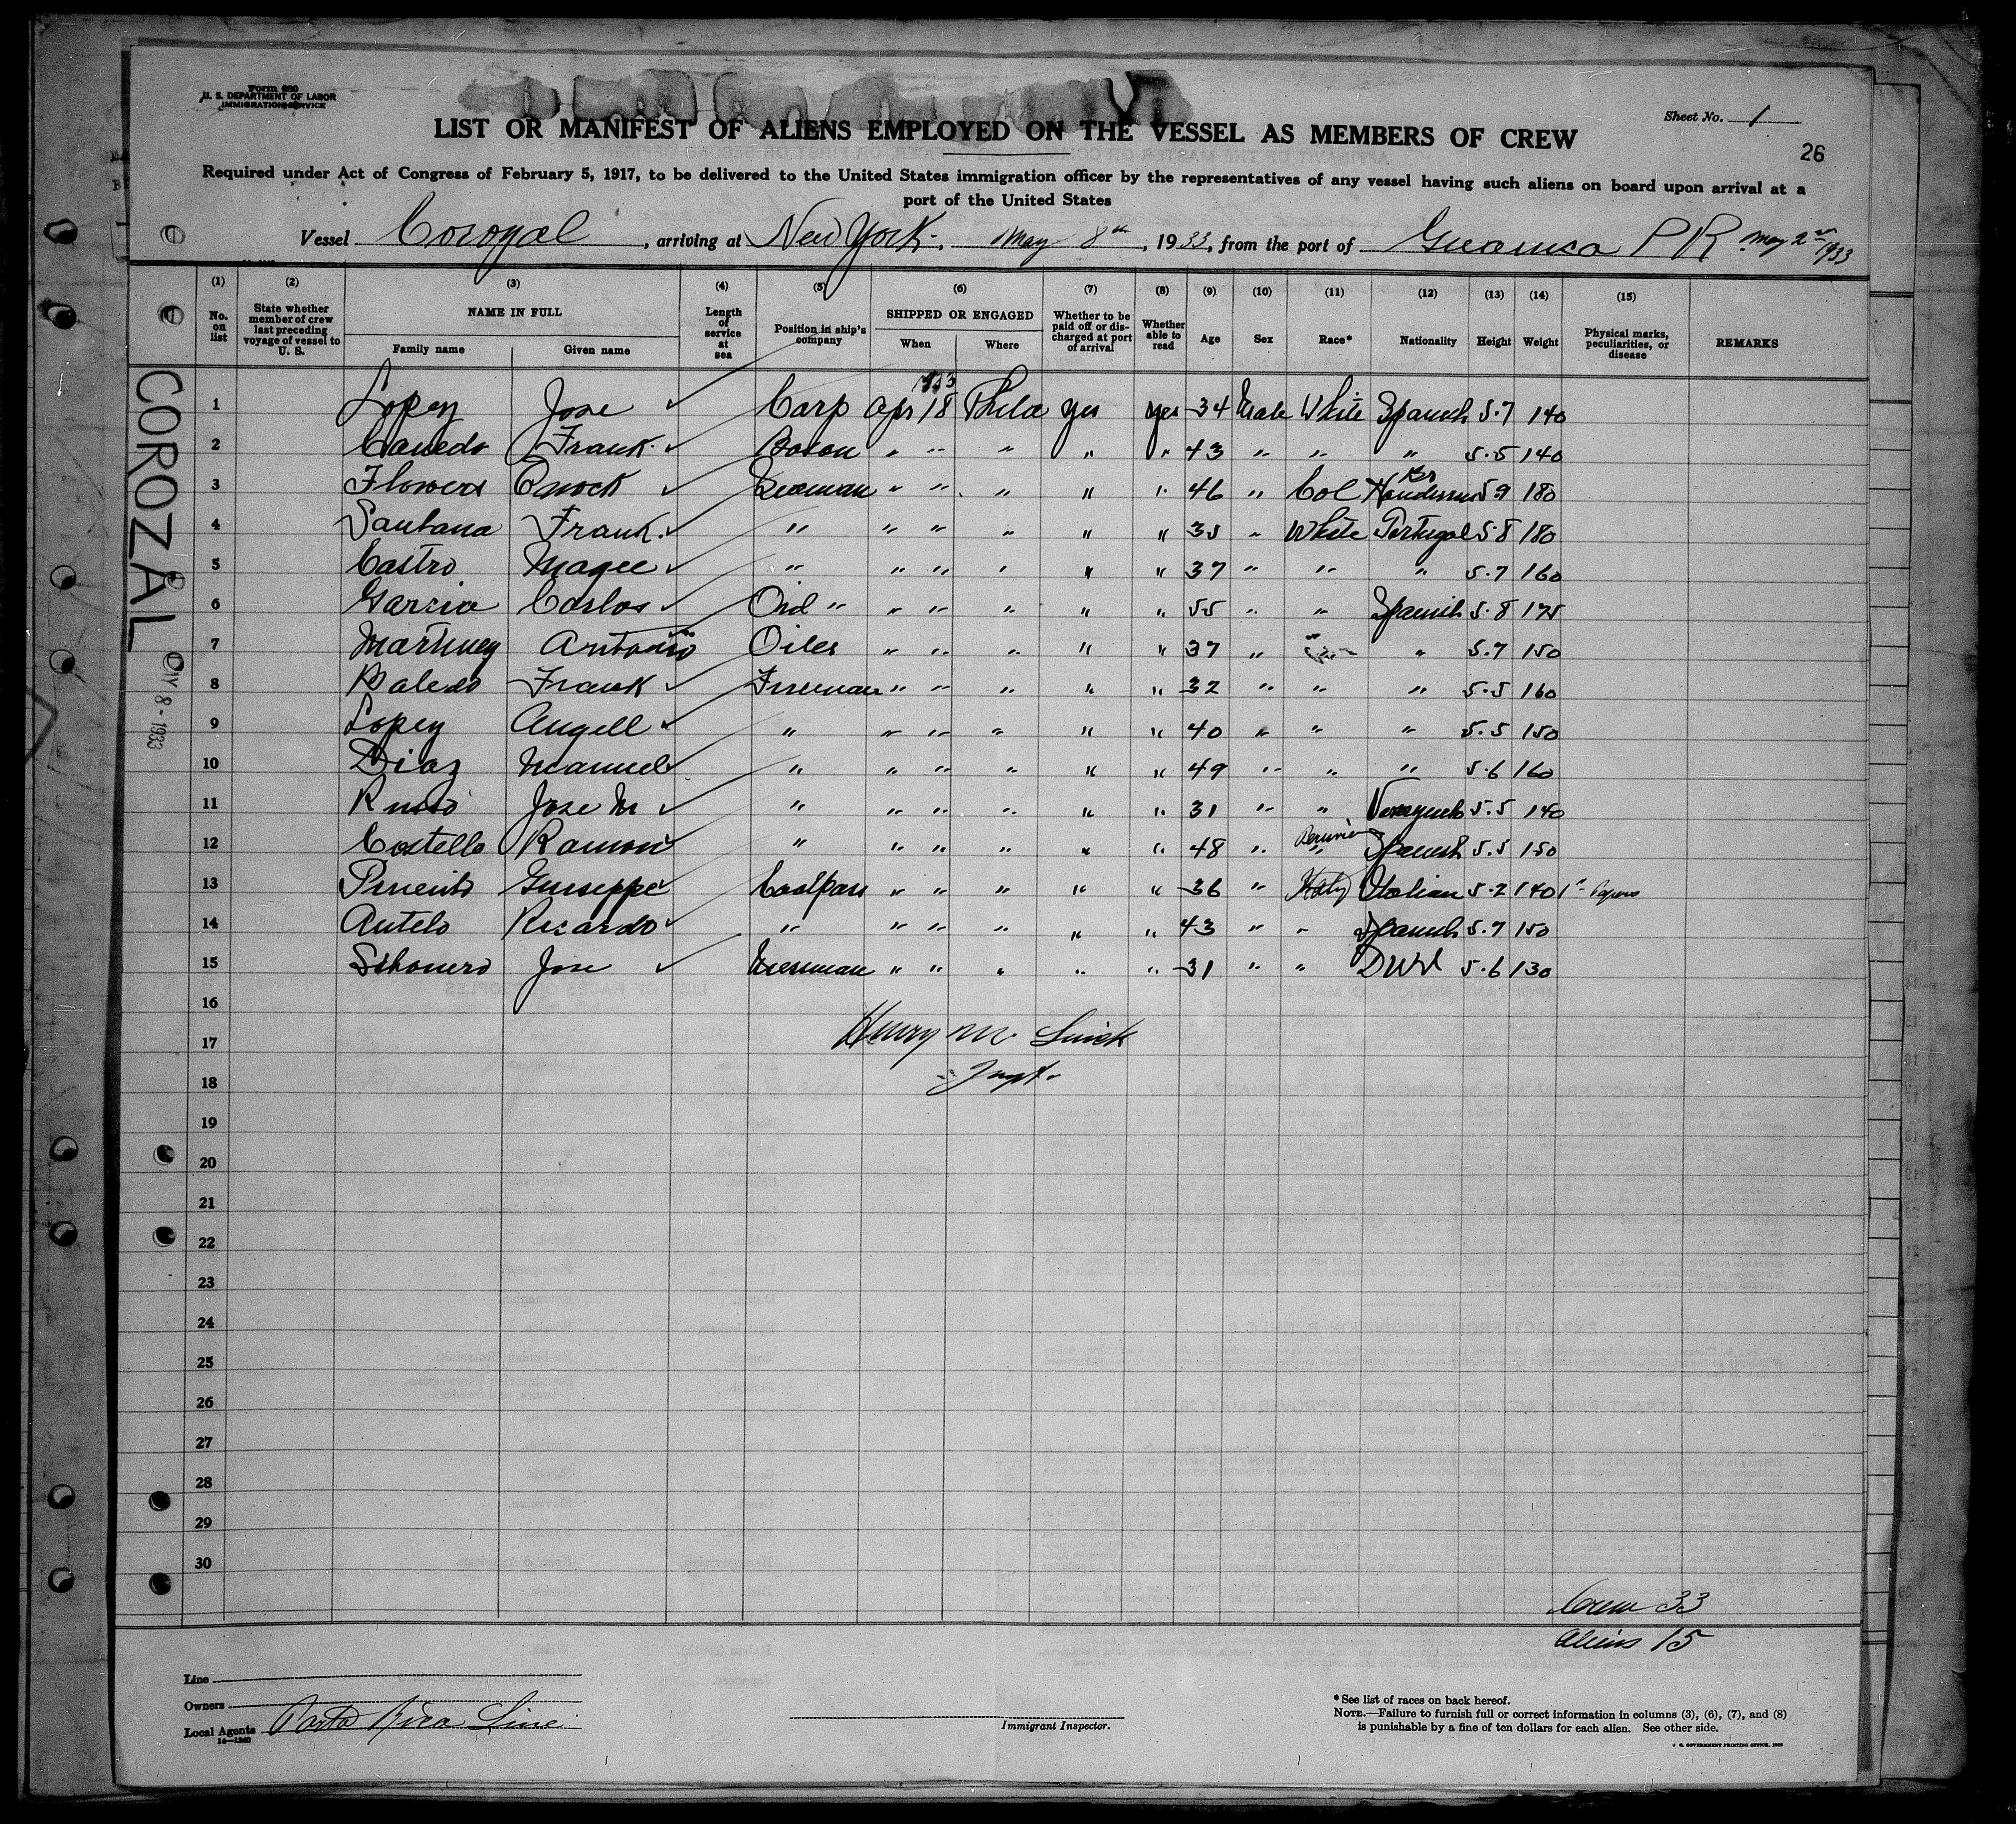 Form 680
U. S. DEPARTMENT OF LABOR
IMMIGRATION SERVICE
Sheet No. 1
LIST OR MANIFEST OF ALIENS EMPLOYED ON THE VESSEL AS MEMBERS OF CREW
26
Required under Act of Congress of February 5, 1917, to be delivered to the United States immigration officer by the representatives of any vessel having such aliens on board upon arrival at a
port of the United States
Vessel Corozal, arriving at New York, May 8th, 1933, from the port of Guanica P R May 2nd 1933
(1) (2) (3) (4) (5) (6) (7) (8) (9) (10) (11) (12) (13) (14) (15)
No. on list
State whether member of crew last preceding voyage of vessel to U. S.
NAME IN FULL
Family name Given name
Length of service at sea
Position in ship's company
SHIPPED OR ENGAGED
When Where
Whether to be paid off or discharged at port of arrival
Whether able to read
Age Sex Race* Nationality Height Weight
Physical marks, peculiarities, or disease
REMARKS
COROZAL
8 - 1933
1933
1 Lopez Jose ✓ Carp Apr 18 Phila yes yes 34 Male White Spanish 5.7 140
2 Canedo Frank ✓ Boson " " " " " 43 " " " 5.5 140
3 Flowers Enock ✓ Seaman " " " " " 46 " Col Br Honduras 5.9 180
4 Santana Frank ✓ " " " " " " 35 " White Portugal 5.8 180
5 Castro Magee ✓ " " " " " " 37 " " " 5.7 160
6 Garcia Carlos ✓ Ord " " " " " " 55 " " Spanish 5.8 175
7 Martinez Antonio Oiler " " " " " 37 " " " 5.7 150
8 Baledo Frank ✓ Fireman " " " " " 32 " " " 5.5 160
9 Lopez Angell ✓ " " " " " " 40 " " " 5.5 150
10 Diaz Manuel ✓ " " " " " " 49 " " " 5.6 160
11 Jose M ✓ " " " " " " 31 " " 5.5 140
12 Costello Ramon ✓ " " " " " " 48 " " Spanish 5.5 150
13 Guiseppe ✓ Coalpass " " " " " 36 " Italy Italian 5.2 140 1st Papers
14 Antelo Ricardo ✓ " " " " " " 43 " " Spanish 5.7 150
15 Jose ✓ Messman " " " " " 31 " " 5.6 130
16
17 Henry M.
18
19
20
21
22
23
24
25
26
27
28
29
30
Crew 33
Aliens 15
Line
Owners
Local Agents Porto Rico Line
14—1240
Immigrant Inspector.
*See list of races on back hereof.
NOTE.—Failure to furnish full or correct information in columns (3), (6), (7), and (8)
is punishable by a fine of ten dollars for each alien. See other side.
U. S. GOVERNMENT PRINTING OFFICE